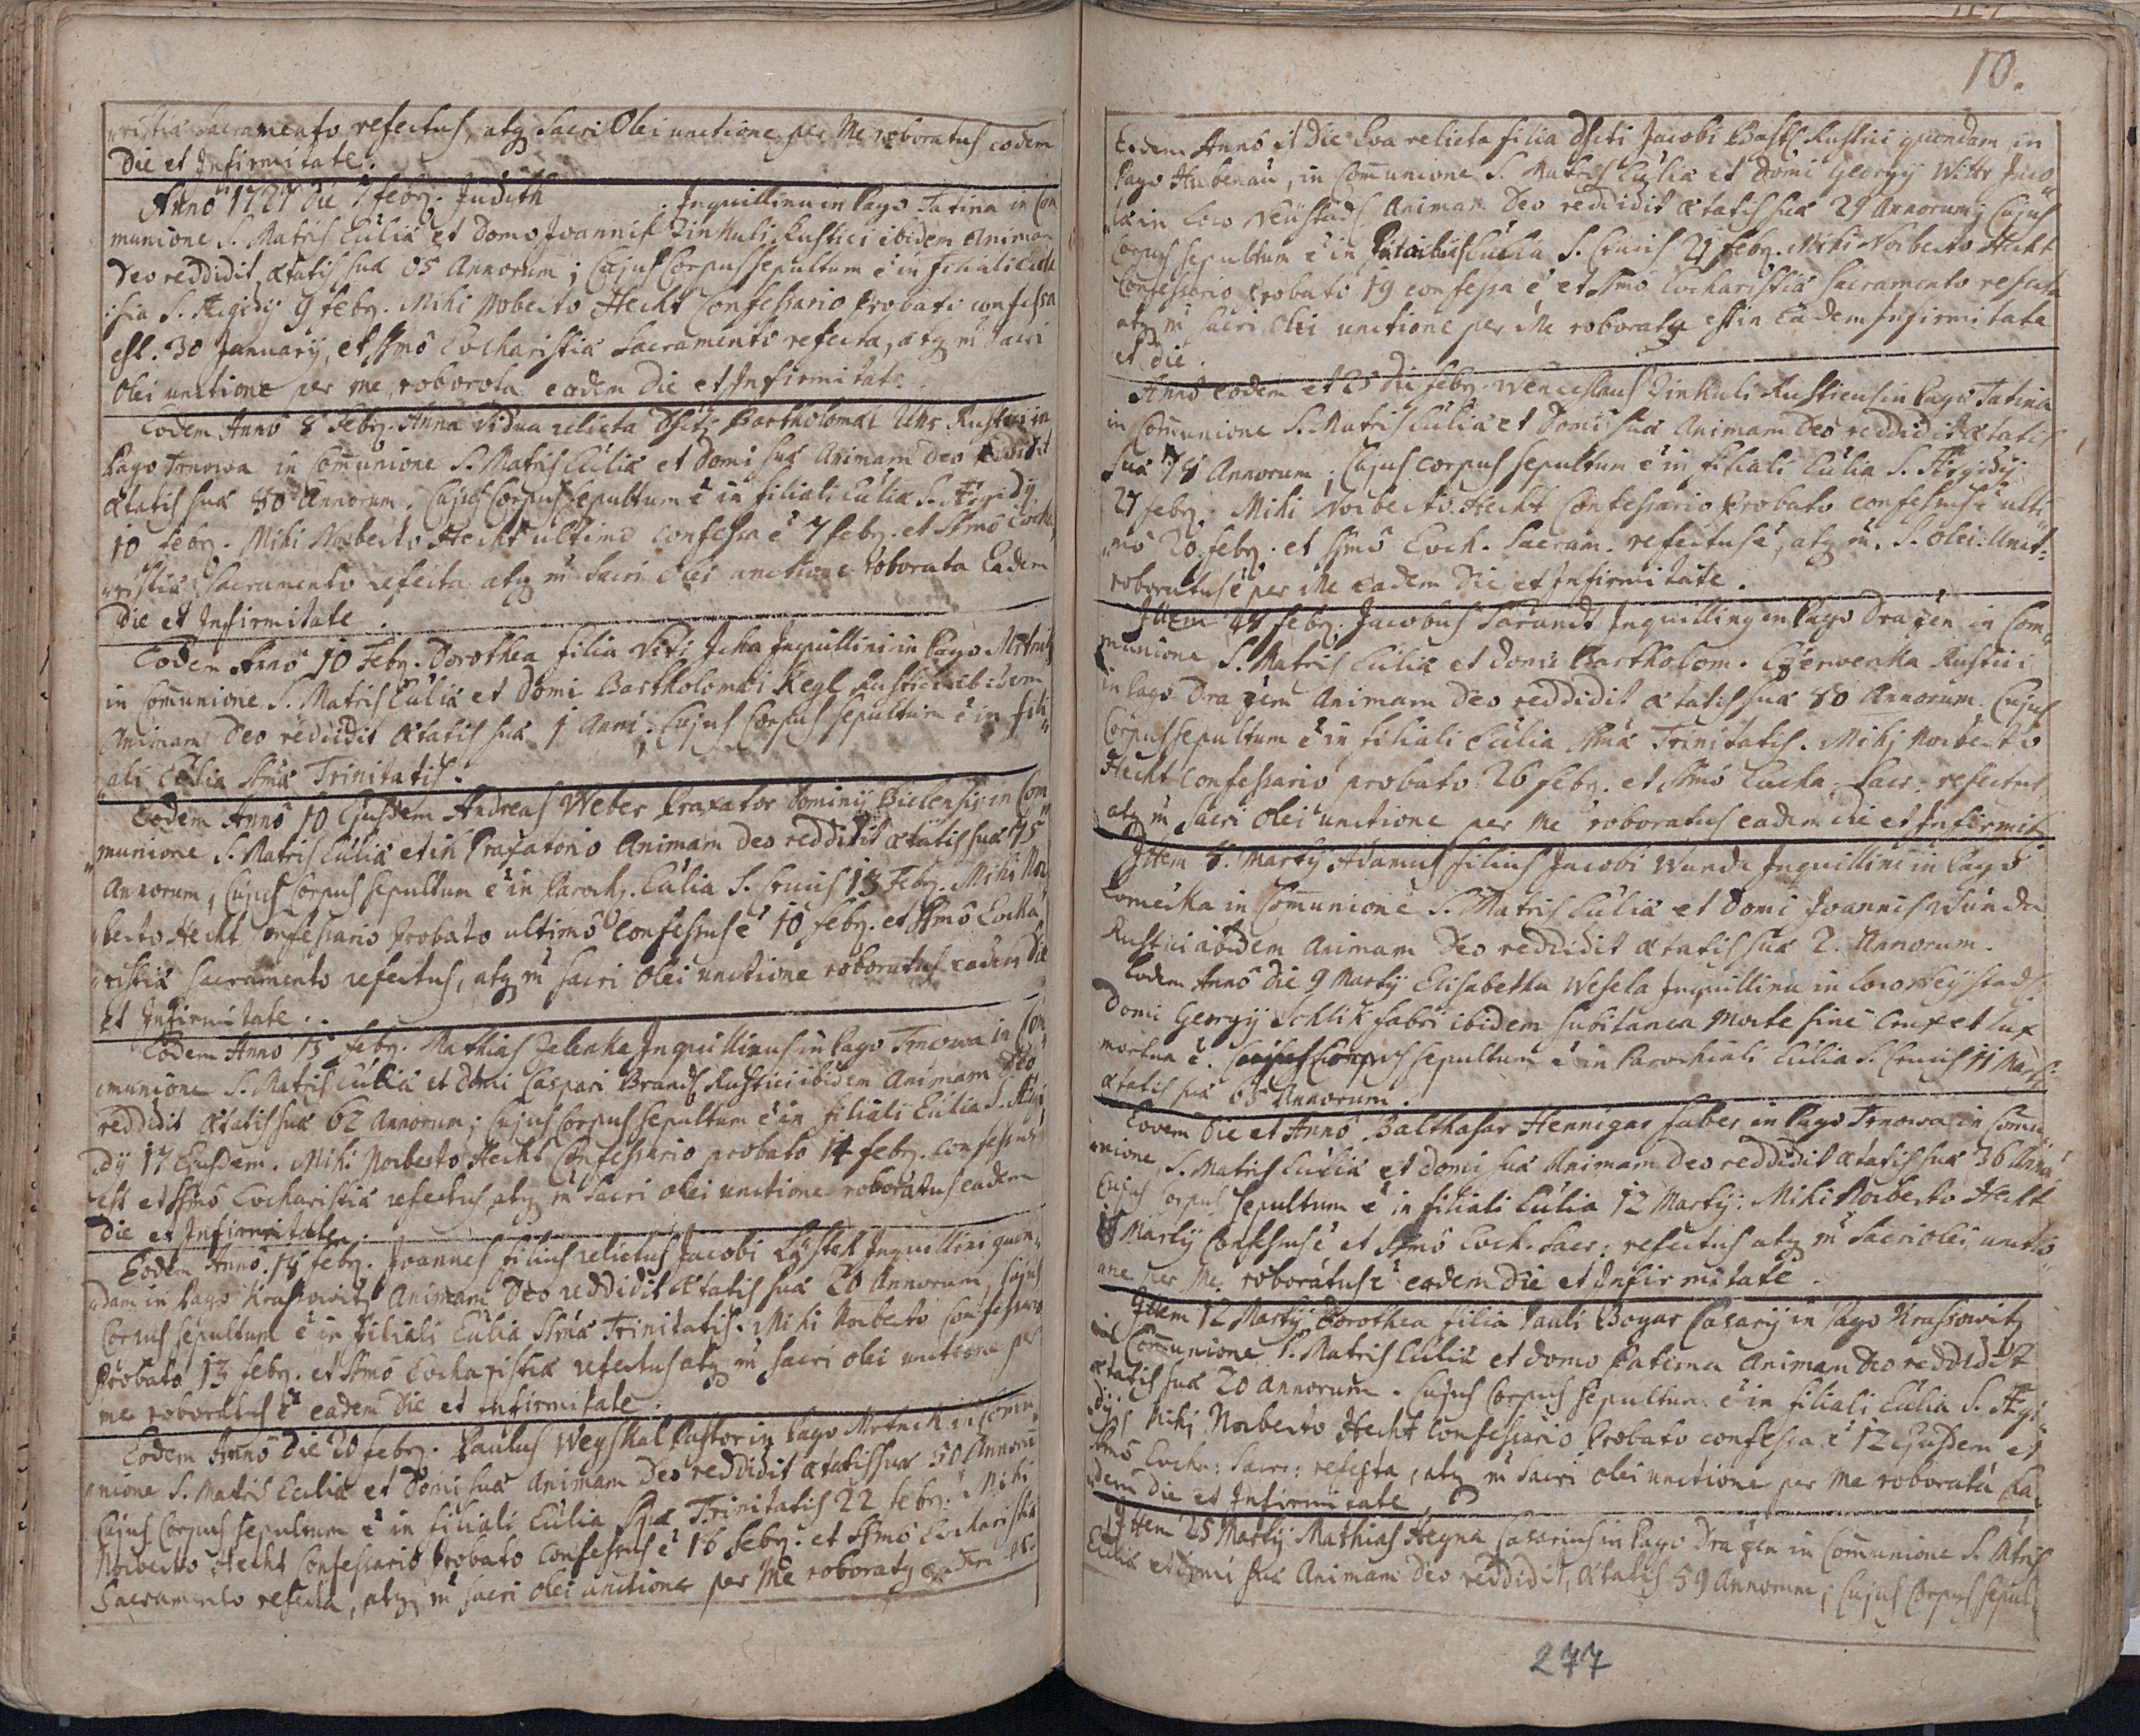 ristiæ Sacramento refectus, atq sacri Olei unctione per Me roboratus eodem
Die et Infirmitate.
Anno 1727 die 7 febr. Judith Inquillina in Pago Tatina in Com
munione S. Matris Ecliæ et Domo Joannis Zinkuli Rustici ibidem Animam
Deo reddidit, ætatis suæ 65 Annorum; Cujus Corpus sepultum ē in filiali Eccle
siа S. Ægidÿ 9 febr. Mihi Norberto Hecht Confessario Probato confessa
est. 30 Januarÿ, et ssmo Eucharistiæ Sacramento refecta, atq m sacri
Olei unctione per me roborata eadem Die et Infirmitate.
Eodem Anno 8 febr. Anna vidua relicta Bartholomæi Uhr Rustici in
Pago Trnowa in Communione S. Matris Ecliæ et Domi suæ Animam Deo reddidit
ætatis suæ 80 Annorum. Cujus Corpus sepultum ē in filiali Eclia S. Ægidÿ
10 febr. Mihi Norberto Hecht ultimo confessa ē 7 febr. et ssmo Eucha
ristiæ Sacramento refecta atq m sacri Olei unctione roborata Eadem
Die et Infirmitate.
Eodem Anno 10 Febr. Dorothea filia Viti Inquillini in Pago
in Communione S. Matris Ecliæ et Domi Bartholomæi Kegl Rustici ibidem
Animam Deo reddidit ætatis suæ 1 Anni; Cujus Corpus sepultum ē in fili
ali Eclia ssmæ Trinitatis.
Eodem Anno 10 Ejusdem Andreas Weber Praxator Dominÿ Bielensis in Com
munione S. Matris Ecliæ et in Praxatorio Animam Deo reddidit ætatis suæ 75
Annorum, Cujus Corpus sepultum ē in Paroch. Eclia S. Crucis 13 Febr. Mihi Nor
berto Hecht Confessario Probato ultimo confessus ē 10 febr. et ssmo Eucha
ristiæ Sacramento refectus, atq m sacri Olei unctione roboratus eadem Die
et Infirmitate.
Eodem Anno 15 febr. Mathias Jelenka Inquillinus in Pago Trnowa in Com
munione S. Matris Ecliæ et Domi Caspari Brands Rustici ibidem Animam Deo
reddidit ætatis suæ 62 Annorum; Cujus Corpus sepultum ē in filiali Eclia S. Ægi
dÿ 17 Ejusdem. Mihi Norberto Hecht Confessario probato 14 febr. confessus
est et ssmo Eucharistiæ refectus atq m sacri olei unctione roboratus eadem
Die et Infirmitate.
Eodem Anno 14 febr. Joannes filius relictus Jacobi Inquillini quon
dam in Pago Krassowitz Animam Deo reddidit ætatis suæ 20 Annorum, Cujus
Corpus sepultum ē in filiali Eclia ssmæ Trinitatis. Mihi Norberto Confessario
Probato 13 febr. et ssmo Eucharistiæ refectus atq m sacri olei unctione per
me roboratus ē eadem Die et Infirmitate.
Eodem Anno Die 20 febr. Paulus Weyskal Pastor in Pago in Commu
nione S. Matris Ecliæ et Domi suæ Animam Deo reddidit ætatis suæ 50 Annorū
Cujus Corpus sepultum ē in filiali Eclia Trinitatis 22 febr. Mihi
Norberto Hecht Confessario Probato confessus ē 16 febr. et ssmo Eucharistiæ
Sacramento refecta, atq m sacri olei unctione per Me roboratq eadem
10.
Eodem Anno et Die Eva relicta filia Jacobi Rustici quondam in
Pago Hubenau, in Communione S. Matris Ecliæ et Domi Georgÿ Wittr Inco
læ in Loco Neüstadl Animam Deo reddidit ætatis suæ 29 Annorum; Cujus
Corpus sepultum ē in Eclia S. Crucis 21 febr. Mihi Norberto Hecht
Confessario Probato 19 confessa ē et ssmo Eucharistiæ Sacramento refecta
atq m sacri Olei unctione per Me roboratq est in Eadem Infirmitate
et die.
Anno eodem et 25 Die febr. Wenceslaus Zinkuli Rusticus in Pago Tatina
in Communione S. Matris Ecliæ et Domi suæ Animam Deo reddidit ætatis
suæ 78 Annorum; Cujus corpus sepultum ē in filiali Eclia S. Ægidÿ
27 febr. Mihi Norberto Hecht Confessario Probato confessus ē ulti
mo 20 febr. et ssmo Euch. Sacram. refectus ē, atq m. S. olei Unct:
roboratus ē per Me eadem Die et Infirmitate.
Ittem 27 febr. Jacobus Inquillinq in Pago Dražen in Com
munione S. Matris Ecliæ et Domi Bartholom. Czerwenka Rustici
in Pago Dražem Animam Deo reddidit ætatis suæ 80 Annorum. Cujus
Corpus sepultum ē in filiali Eclia ssmæ Trinitatis. Mihi Norberto
Hecht Confessario probato 26 febr. et ssmo Eucha. Sacr. refectus
atq m sacri Olei unctione per Me roboratus eadem die et Infirmit.
Ittem 8. Martÿ Adamus filius Jacobi Wunda Inquillini in Pago
in Communione S. Matris Ecliæ et Domi Joannis Wunda
Rustici ibidem Animam Deo reddidit ætatis suæ 2. Annorum.
Eodem Anno Die 9 Martÿ Elisabetha Wesela Inquillina in Loco Neystadl
Domi Georgÿ Schlik fabri ibidem subitanea Morte sine Crux et Lux
mortua ē. Cujus Corpus sepultum ē in Parochiali Eclia S. Crucis 11 Martÿ
ætatis suæ 65 Annorum.
Eodem Die et Anno Balthasar Hennigar faber in Pago Trnowa in Commu
nione S. Matris Ecliæ et domi suæ Animam Deo reddidit ætatis suæ 36
Cujus Corpus sepultum ē in filiali Eclia 12 Martÿ: Mihi Norberto Hecht
Martÿ Confessus ē et ssmo Euch. Sacr: refectus atq m sacri olei unctio
ne per Me roboratus ē eadem Die et Infirmitate.
Ittem 12 Martÿ Dorothea filia Pauli Bogar Casarÿ in Pago Krassowitz
in Communione S. Matris Ecliæ et domo Paterna Animam Deo reddidit
ætatis suæ 20 Annorum. Cujus Corpus sepultum ē in filiali Eclia S. Ægi
dÿ, Mihi Norberto Hecht Confessario Probato confessa ē 12 Ejusdem et
ssmo Eucha: Sacr: refecta, atq m sacri olei unctione per me roborata Ea
dem Die et Infirmitate.
Ittem 25 Martÿ Mathias Hegna Casarius in Pago Dražen in Communione S. Mtris
Ecliæ et Domi suæ Animam Deo reddidit, ætatis 59 Annorum; Cujus Corpus sepul
277